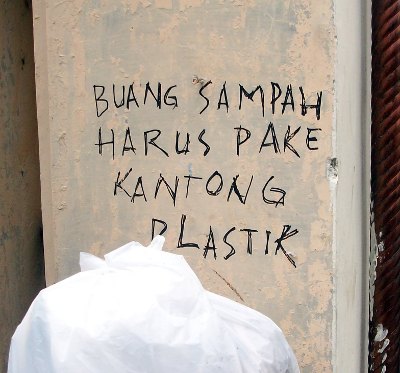 BUANG SAMPAH
HARUS PAKE
KANTONG
PLASTIK